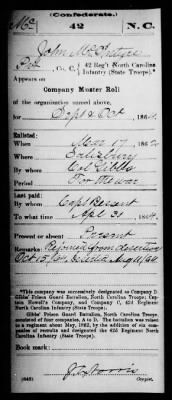 (Confederate.)
Mc 42 N.C.
John McIntire
Pvt, Co. C, 42 Reg't North Carolina
Infantry (State Troops).*
Appears on
Company Muster Roll
of the organization named above,
for Sept & Oct, 1864.
Enlisted:
When Mar 17, 1862.
Where Salisbury
By whom Col Gibbs
Period For the war
Last paid:
By whom Capt Bessent
To what time Apl 31, 1864.
Present or absent Present
Remarks: Rejoined from desertion
Oct 15/64. Aug 11/64
*This company was successively designated as Company D,
Gibbs' Prison Guard Battalion, North Carolina Troops; Cap-
tain Howell's Company, and Company C, 42d Regiment North
Carolina Infantry.
Gibbs' Prison Guard Battalion, North Carolina Troops, con-
sisted of four companies, A to D. The battalion was raised to
a regiment about May, 1862, by the addition of six companies
of recruits and designated the 42d Regiment North Carolina
Infantry (State Troops).
Book mark:
(642) Copyist.